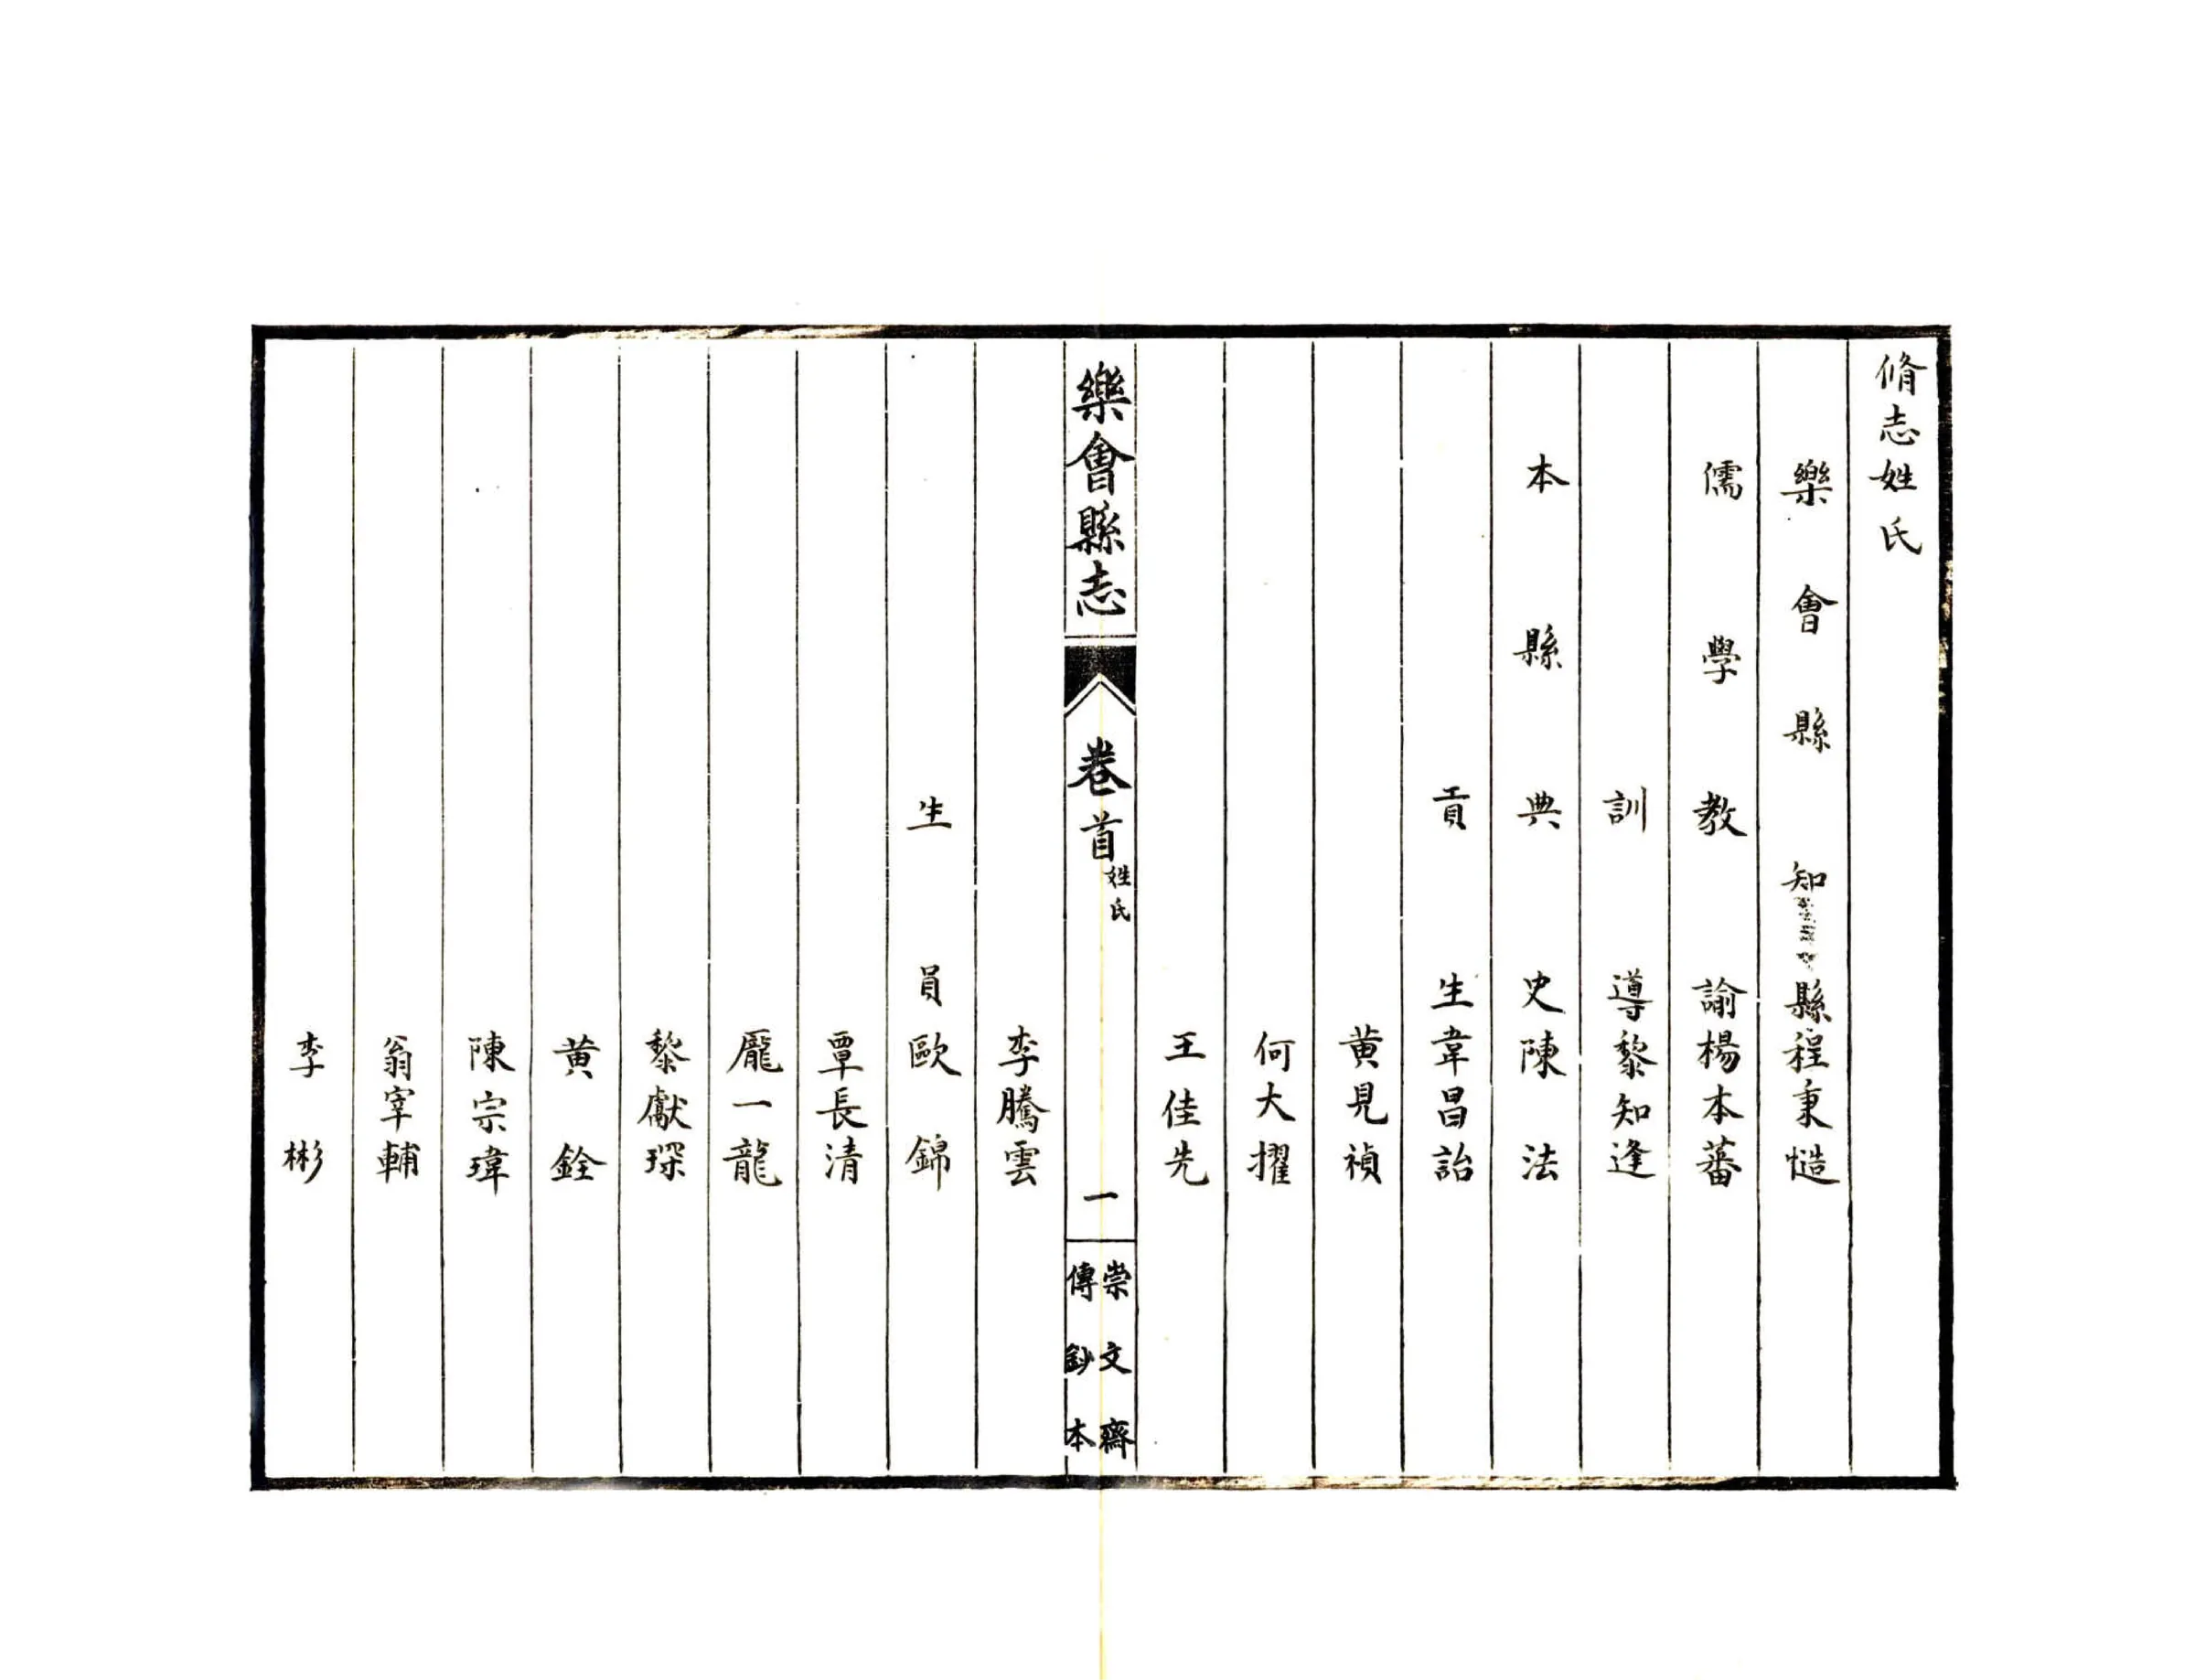 脩志姓氏
樂會縣知縣程秉慥
儒學教諭楊本蕃
訓導黎知逢
本縣典史陳法
貢生韋昌詒
黄見禎
何大擢
王佳先
樂會縣志
卷首
姓氏
一
崇文齋
傳鈔本
李騰雲
生員歐錦
覃長清
龎一龍
黎獻琛
黄銓
陳宗瑋
翁宰輔
李彬